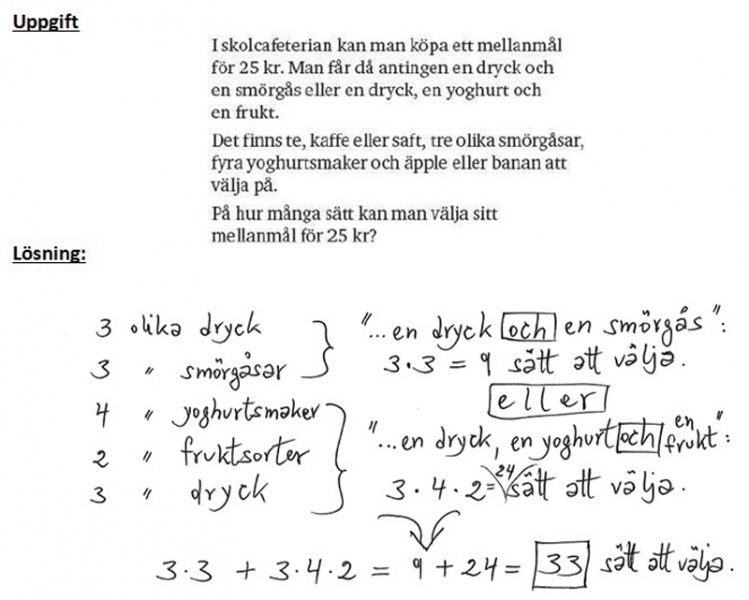 Uppgift
I skolcafeterian kan man köpa ett mellanmål
för 25 kr. Man får då antingen en dryck och
en smörgås eller en dryck, en yoghurt och
en frukt.
Det finns te, kaffe eller saft, tre olika smörgåsar,
fyra yoghurtsmaker och äpple eller banan att
välja på.
På hur många sätt kan man välja sitt
mellanmål för 25 kr?
Lösning:
3 olika dryck
3 〃 smörgåsar
"...en dryck och en smörgås":
3·3 = 9 sätt att välja.
eller
4 〃 yoghurtsmaker
2 〃 fruktsorter
3 〃 dryck
"...en dryck, en yoghurt och en frukt":
3·4·2= 24 sätt att välja.
3·3 + 3·4·2 = 9 + 24 = 33 sätt att välja.